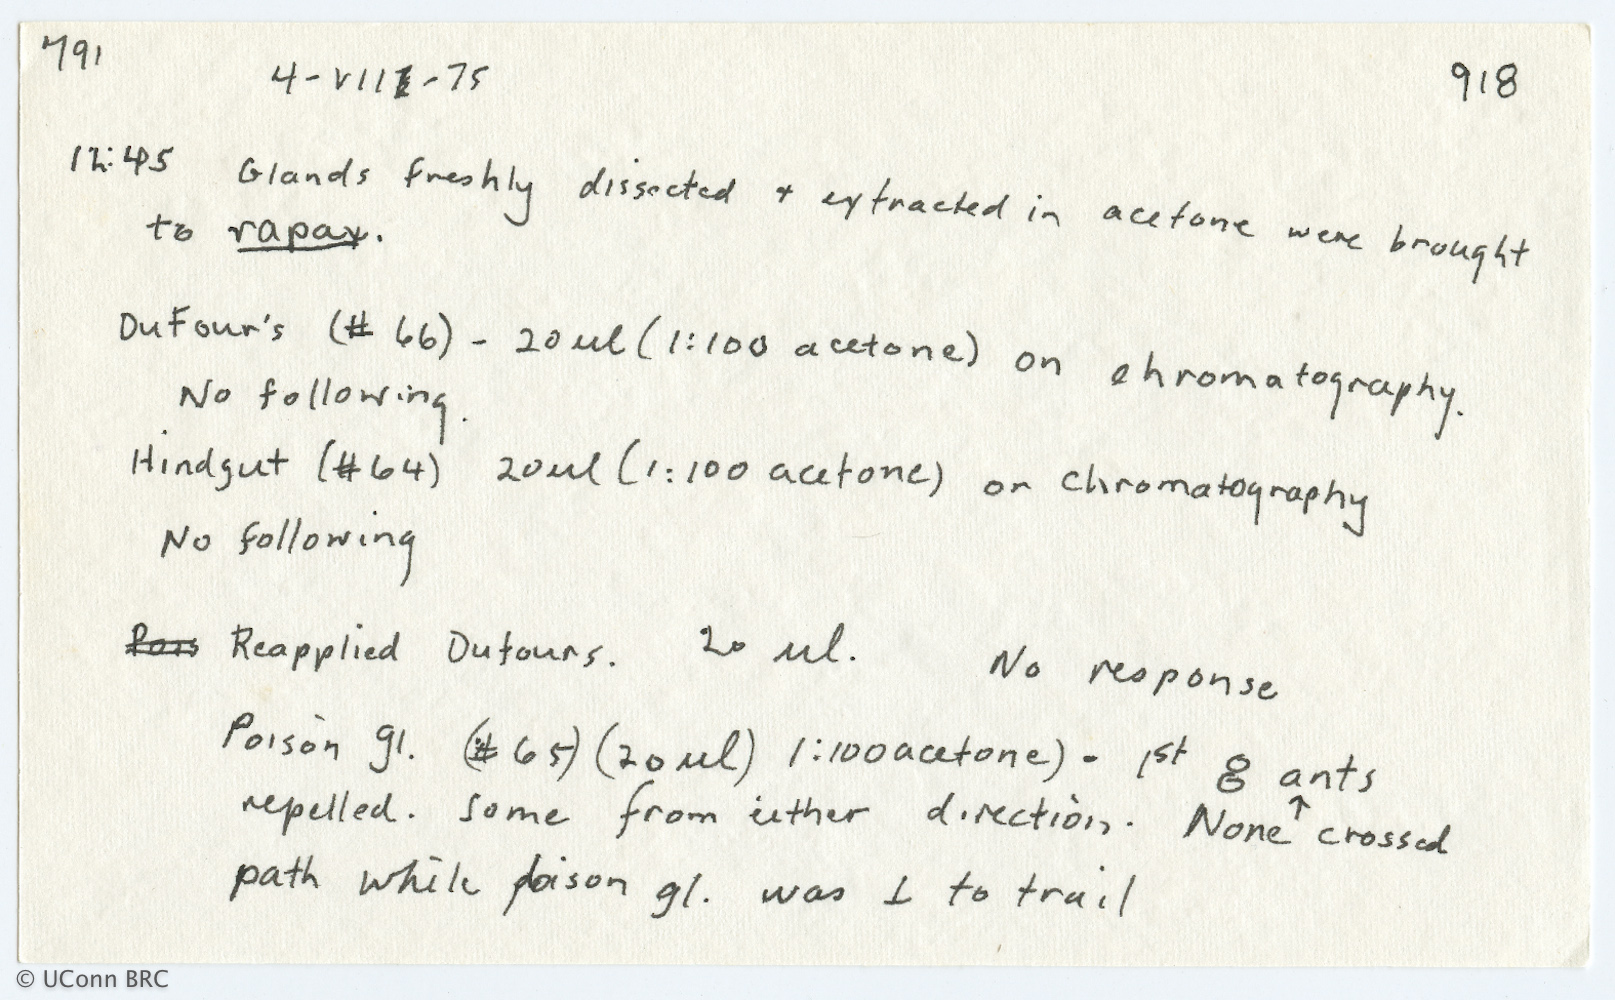 791
4-VIII-75
918
12:45 Glands freshly dissected + extracted in acetone were brought
to rapax.
DuFour's (# 66) - 20 ul (1:100 acetone) on chromatography.
No following.
Hindgut (#64) 20 ul (1:100 acetone) on chromatography
No following
Pois Reapplied Dufours. 20 ul. No response
Poison gl. (# 65) (20 ul) 1:100 acetone) - 1st 8 ants
repelled. Some from either direction. None ↑ crossed
path while poison gl. was ⊥ to trail
© UConn BRC